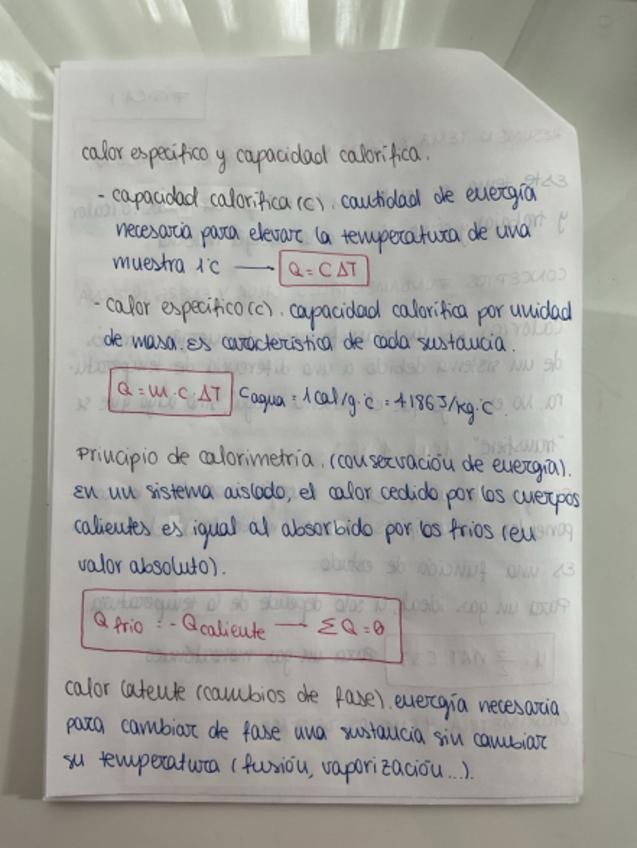 calor específico y capacidad calorífica.
- capacidad calorífica (C). cantidad de energía
necesaria para elevar la temperatura de una
muestra 1°C → Q = C ΔT
- calor específico (c). capacidad calorífica por unidad
de masa. es característica de cada sustancia.
Q = m · c · ΔT cagua = 1 cal/g·°C = 4186J/kg·°C.
Principio de calorimetría. (conservación de energía).
En un sistema aislado, el calor cedido por los cuerpos
calientes es igual al absorbido por los fríos (en
valor absoluto).
Q frío = - Q caliente → ΣQ = 0
calor latente (cambios de fase). energía necesaria
para cambiar de fase una sustancia sin cambiar
su temperatura (fusión, vaporización...).